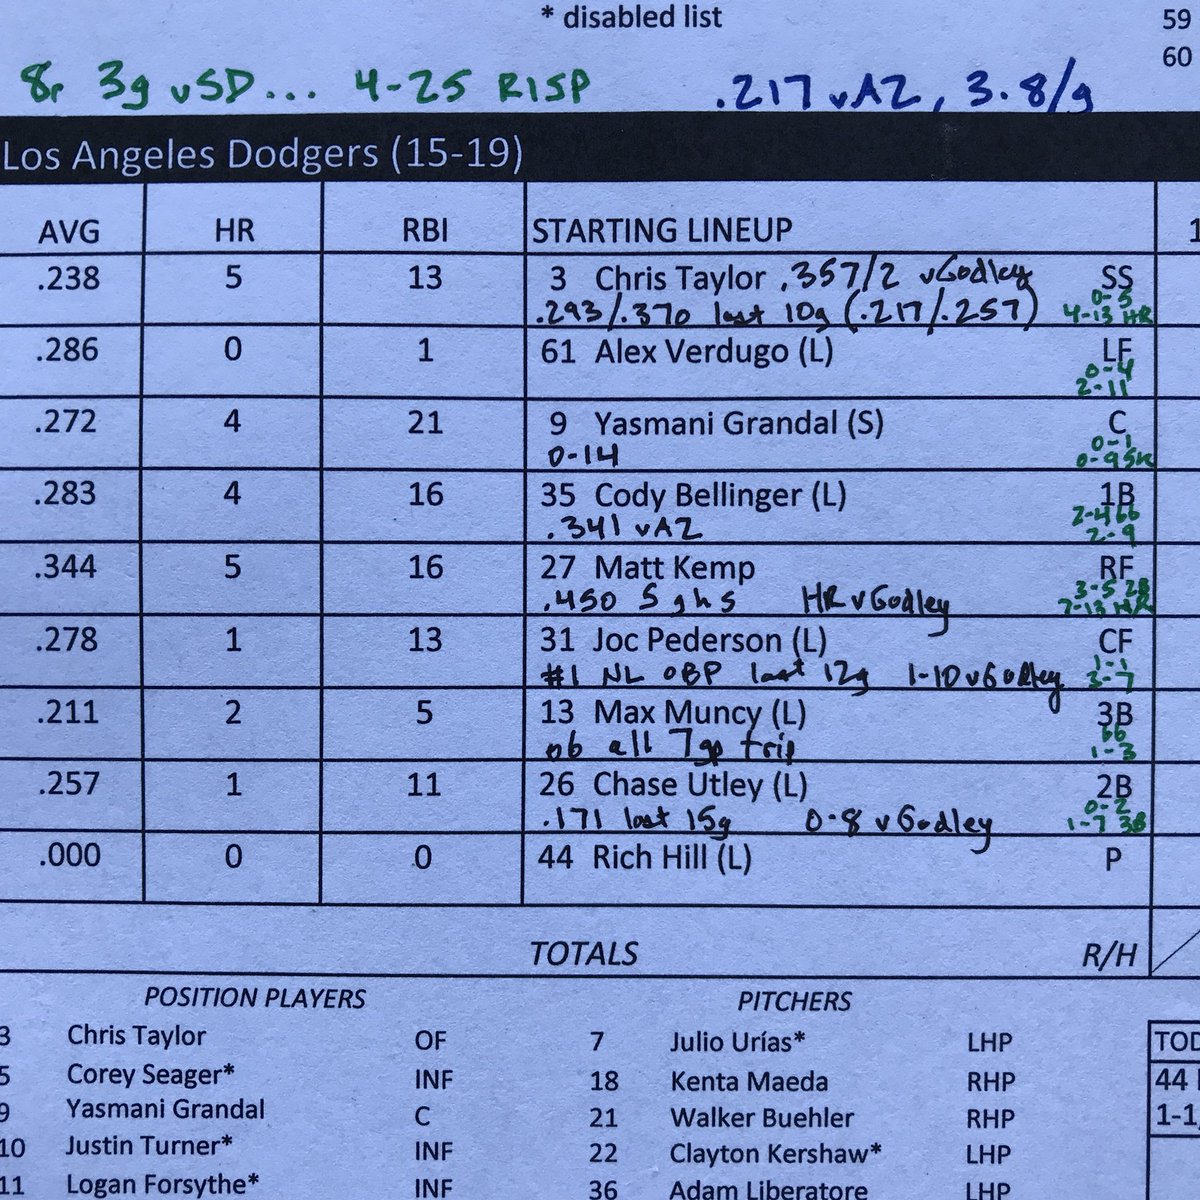 * disabled list 59
60
8r 3g vSD... 4-25 RISP .217 vAZ, 3.8/g
Los Angeles Dodgers (15-19)
AVG HR RBI STARTING LINEUP 1
.238 5 13 3 Chris Taylor .357/2 vGodley SS
0-5
.293/.370 last 10g (.217/.257) 4-13 HR
.286 0 1 61 Alex Verdugo (L) LF
0-4
2-11
.272 4 21 9 Yasmani Grandal (S) C
0-1
0-14 0-9 5K
.283 4 16 35 Cody Bellinger (L) 1B
2-4 bb
.341 vAZ 2-9
.344 5 16 27 Matt Kemp RF
3-5 2B
.450 5 ghs HR vGodley 7-13 HR
.278 1 13 31 Joc Pederson (L) CF
1-1
#1 NL OBP last 12g 1-10 vGodley 3-7
.211 2 5 13 Max Muncy (L) 3B
bb
ob all 7gp trip 1-3
.257 1 11 26 Chase Utley (L) 2B
0-2
.171 last 15g 0-8 vGodley 1-7 3B
.000 0 0 44 Rich Hill (L) P
TOTALS R/H
POSITION PLAYERS PITCHERS
3 Chris Taylor OF 7 Julio Urías* LHP TOD
5 Corey Seager* INF 18 Kenta Maeda RHP 44
9 Yasmani Grandal C 21 Walker Buehler RHP 1-1
10 Justin Turner* INF 22 Clayton Kershaw* LHP
11 Logan Forsythe* INF 36 Adam Liberatore LHP